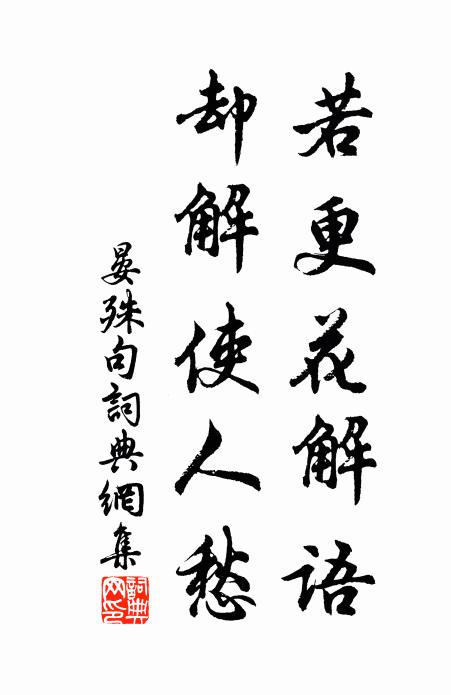 若更花解語
却解使人愁
晏殊句詞典網集
詞典網印